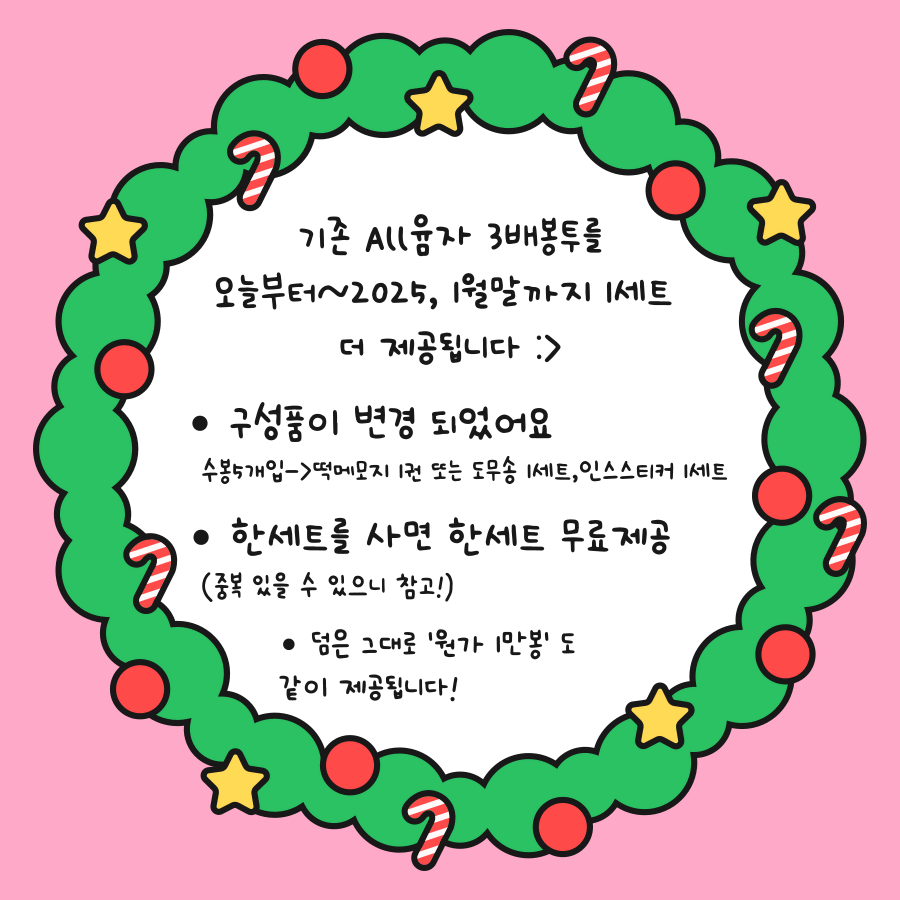 기존 All윰자 3배봉투를
오늘부터~2025, 1월말까지 1세트
더 제공됩니다 :>
• 구성품이 변경 되었어요
수봉5개입->떡메모지 1권 또는 도무송 1세트,인스스티커 1세트
• 한세트를 사면 한세트 무료제공
(중복 있을 수 있으니 참고!)
• 덤은 그대로 '원가 1만봉' 도
같이 제공됩니다!